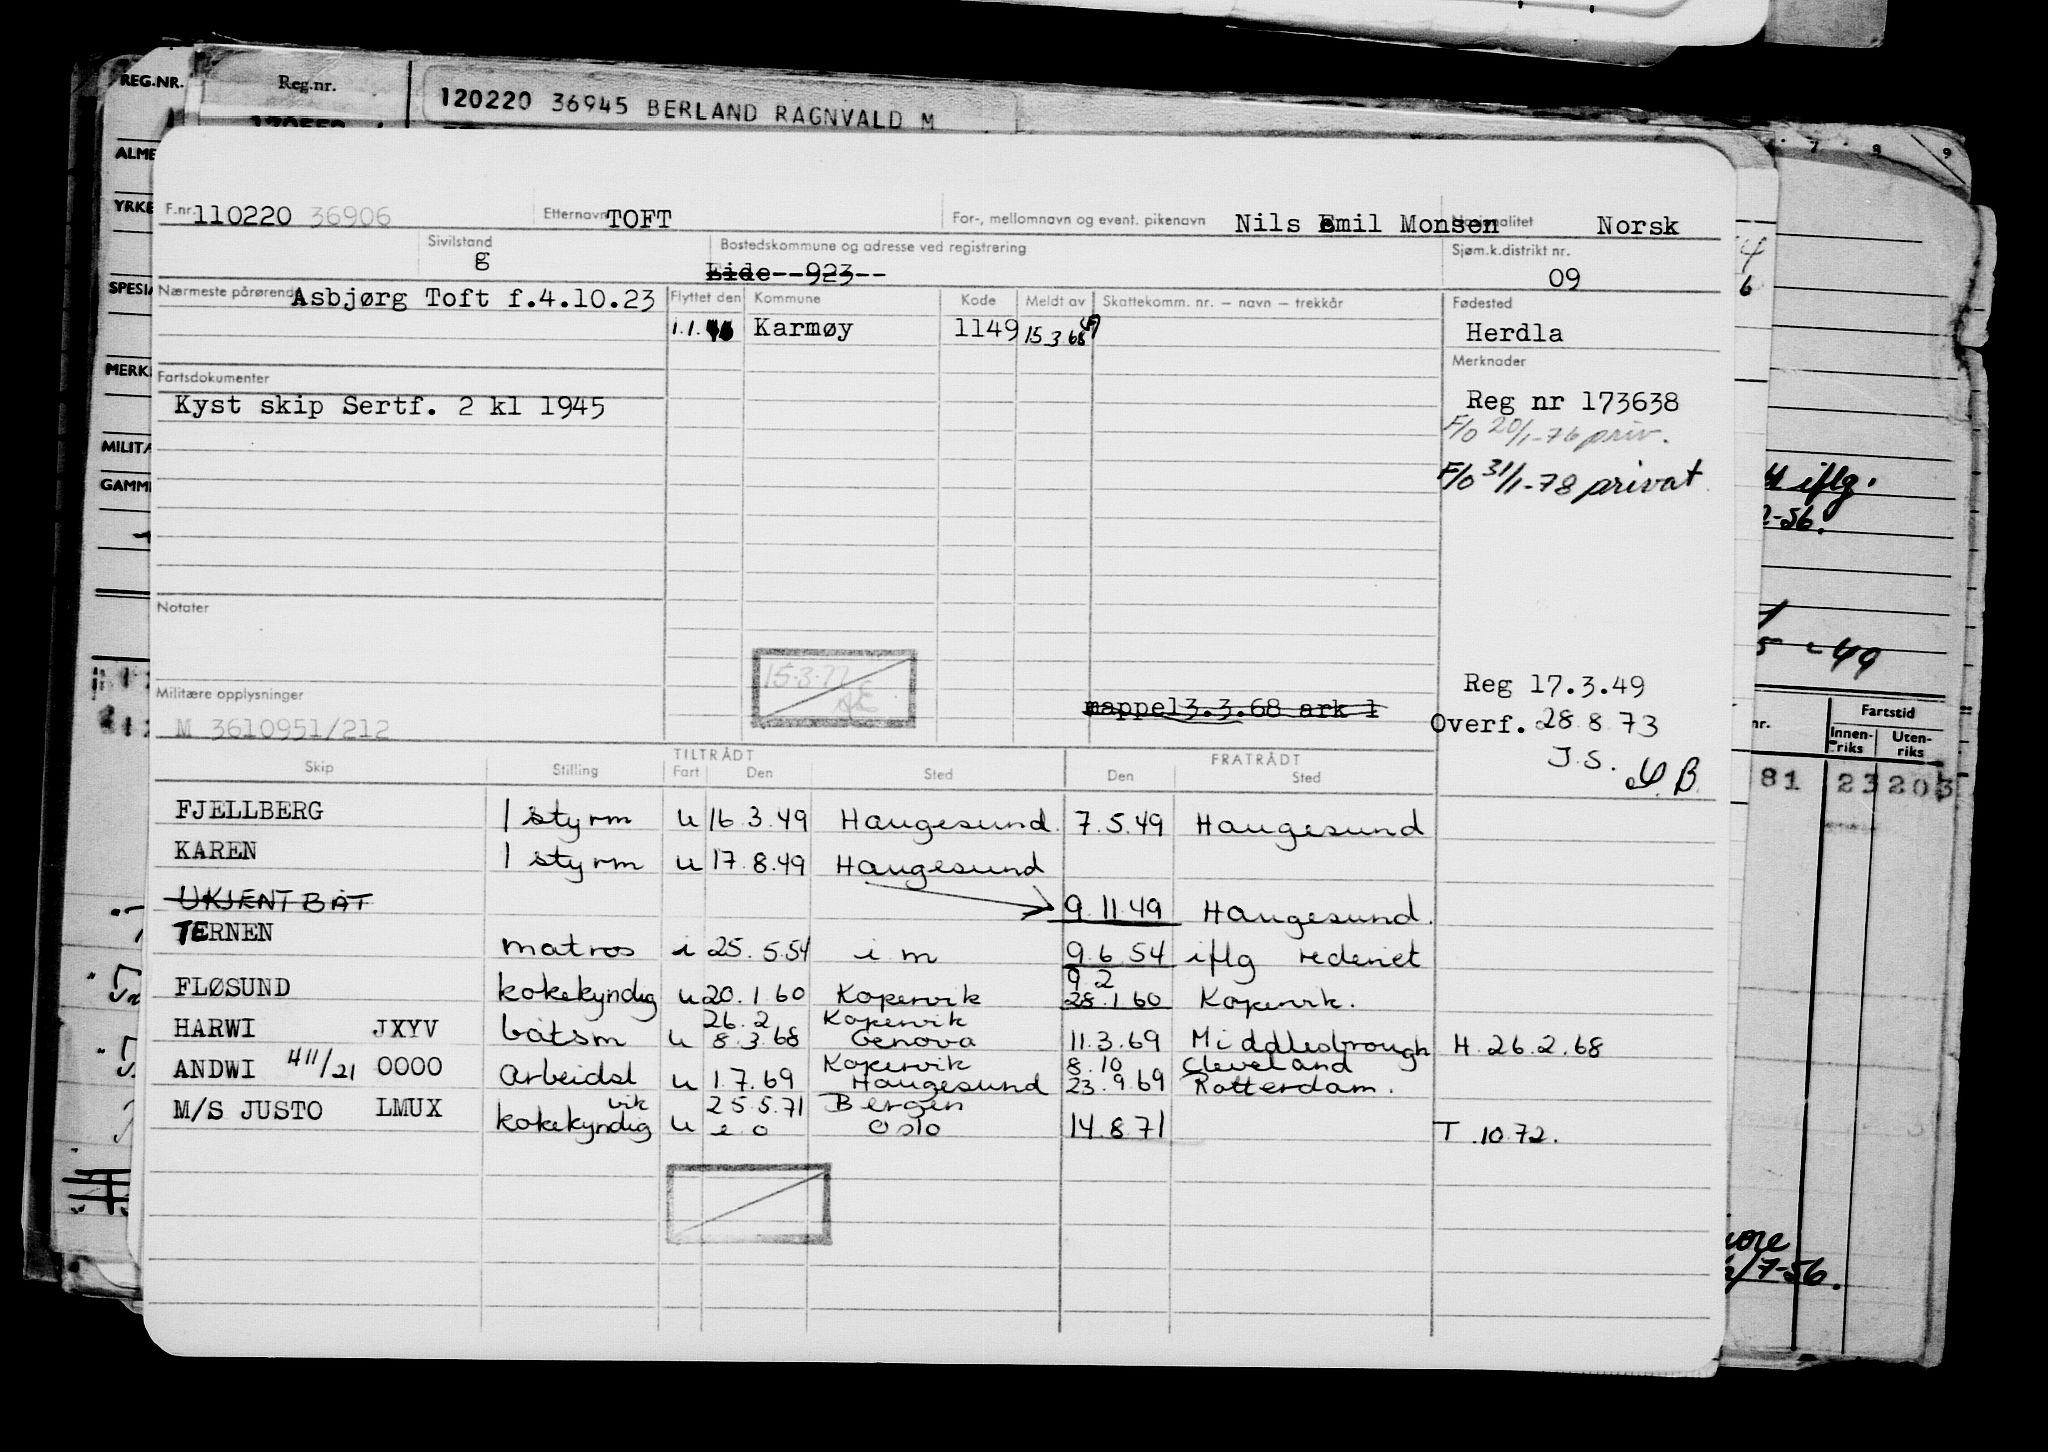 REG.NR. Reg.nr. 120220 36945 BERLAND RAGNVALD M
ALME
YRKE
SPESIA
MERK
MILITÆ
GAMM
F.nr. 110220 36906 Etternavn TOFT For-, mellomnavn og event. pikenavn Nils Emil Monsen Nasjonalitet Norsk
Sivilstand g Bostedskommune og adresse ved registrering Eide--923-- Sjøm.k.distrikt nr. 09
Nærmeste pårørende Asbjørg Toft f.4.10.23 Flyttet den Kommune Kode Meldt av Skattekomm. nr. – navn – trekkår Fødested
1.1. Karmøy 1149 15.3.68 Herdla
Merknader
Fartsdokumenter
Kyst skip Sertf. 2 kl 1945 Reg nr 173638
F/o 20/1-76 priv.
F/o 31/1-78 privat
Notater
15.3.77
Militære opplysninger Reg 17.3.49
M 3610951/212 mappe13.3.68 ark 1 Overf. 28.8.73
J.S. B.
Skip Stilling TILTRÅDT Fart Den Sted FRATRÅDT Den Sted
FJELLBERG 1 styrm u 16.3.49 Haugesund 7.5.49 Haugesund
KAREN 1 styrm u 17.8.49 Haugesund
UKJENT BÅT 9.11.49 Haugesund.
TERNEN matros i 25.5.54 i m 9.6.54 iflg rederiet
9 2
FLØSUND kokekyndig u 20.1.60 Kopervik 28.1.60 Kopervik.
26.2 Kopervik
HARWI JXYV båtsm u 8.3.68 Genova 11.3.69 Middlesbrough H.26.2.68
Kopervik 8.10 Cleveland
ANDWI 411/21 OOOO arbeidsl u 1.7.69 Haugesund 23.9.69 Rotterdam.
vik 25.5.71 Bergen
M/S JUSTO LMUX kokekyndig u e o Oslo 14.8.71 T.10.72.
7 8 9
4
6
iflg.
2-56.
-49
nr. Fartstid
Innen-riks Uten-riks
81 23 203
/7-56.